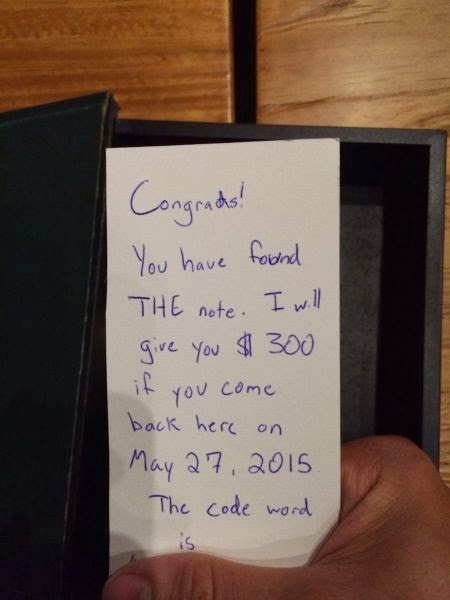 Congrats!
You have found
THE note. I will
give you $ 300
if you come
back here on
May 27, 2015
The code word
is